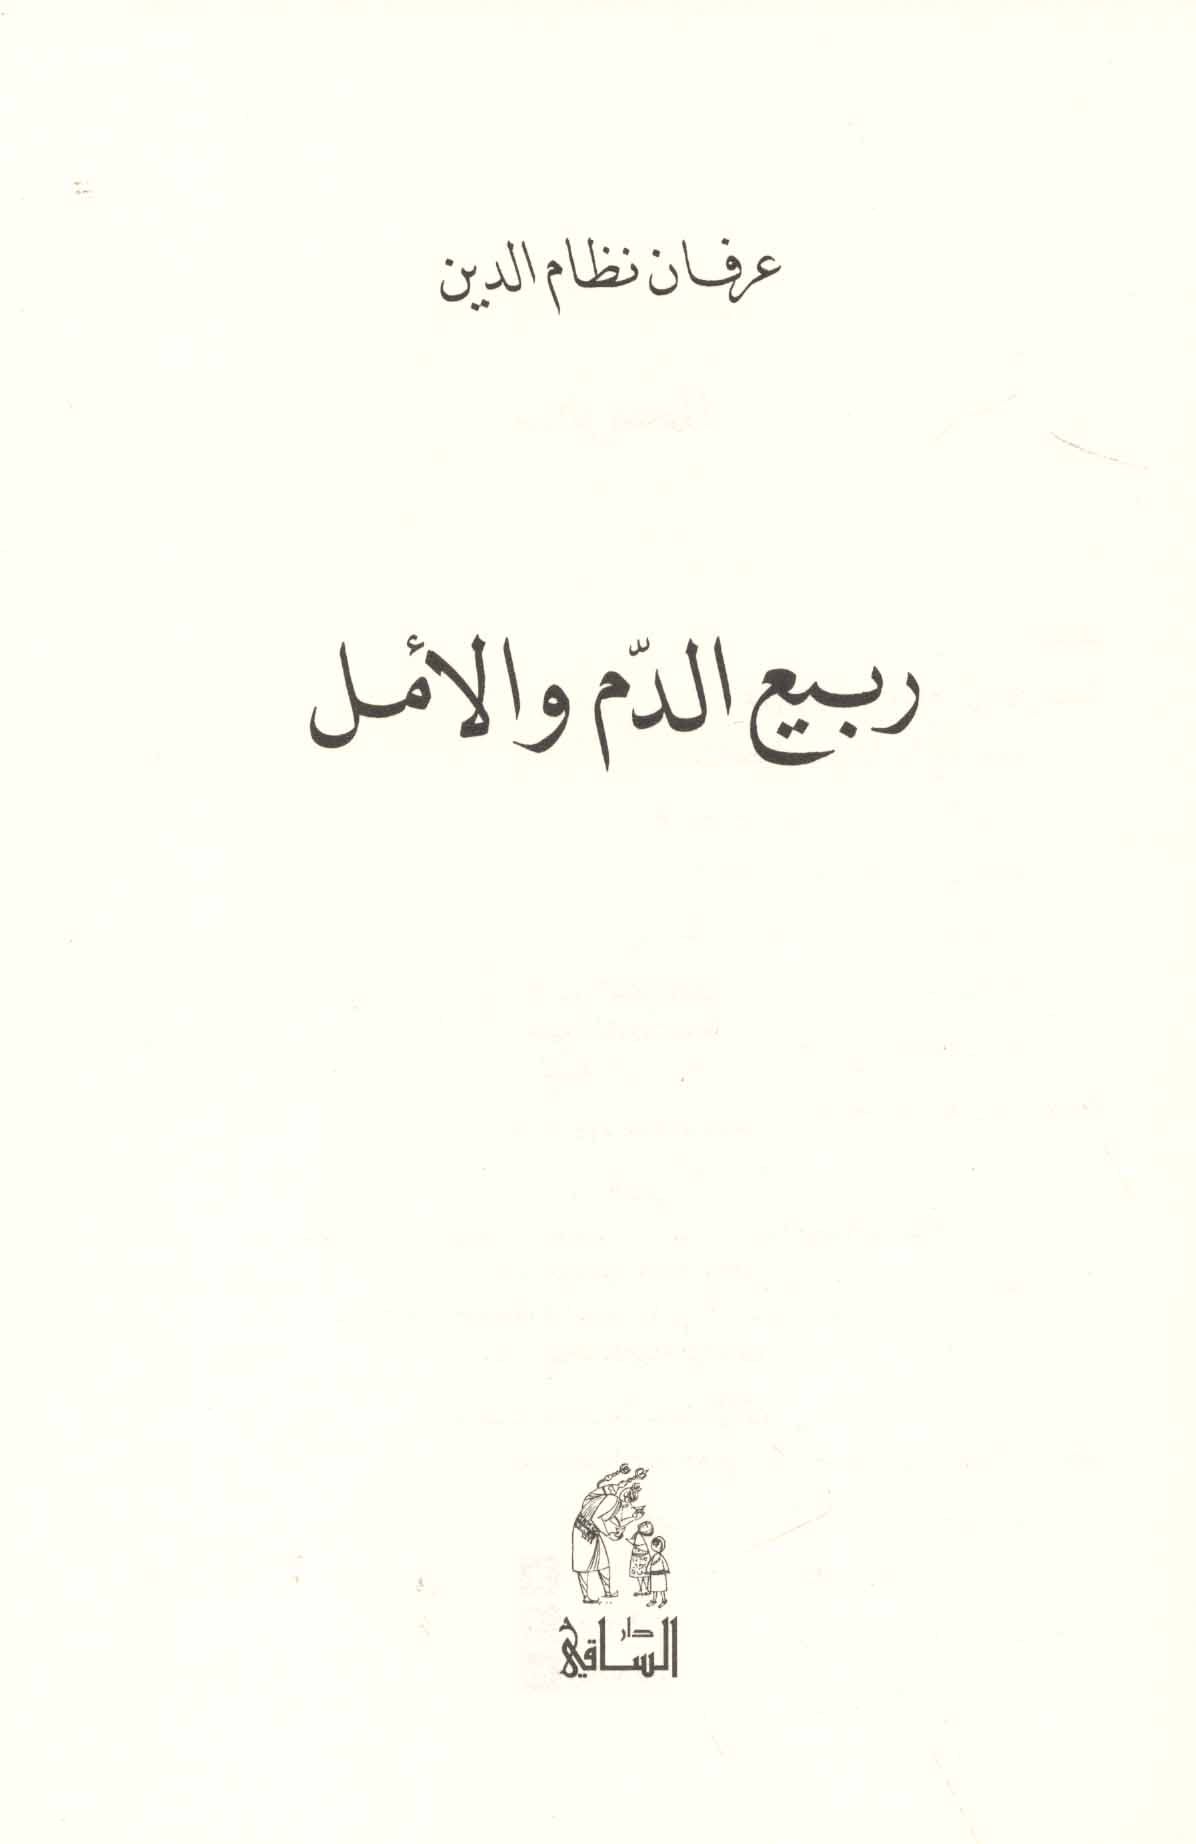 عرفان نظام الدين
ربيع الدّم والأمل
دار
الساقي